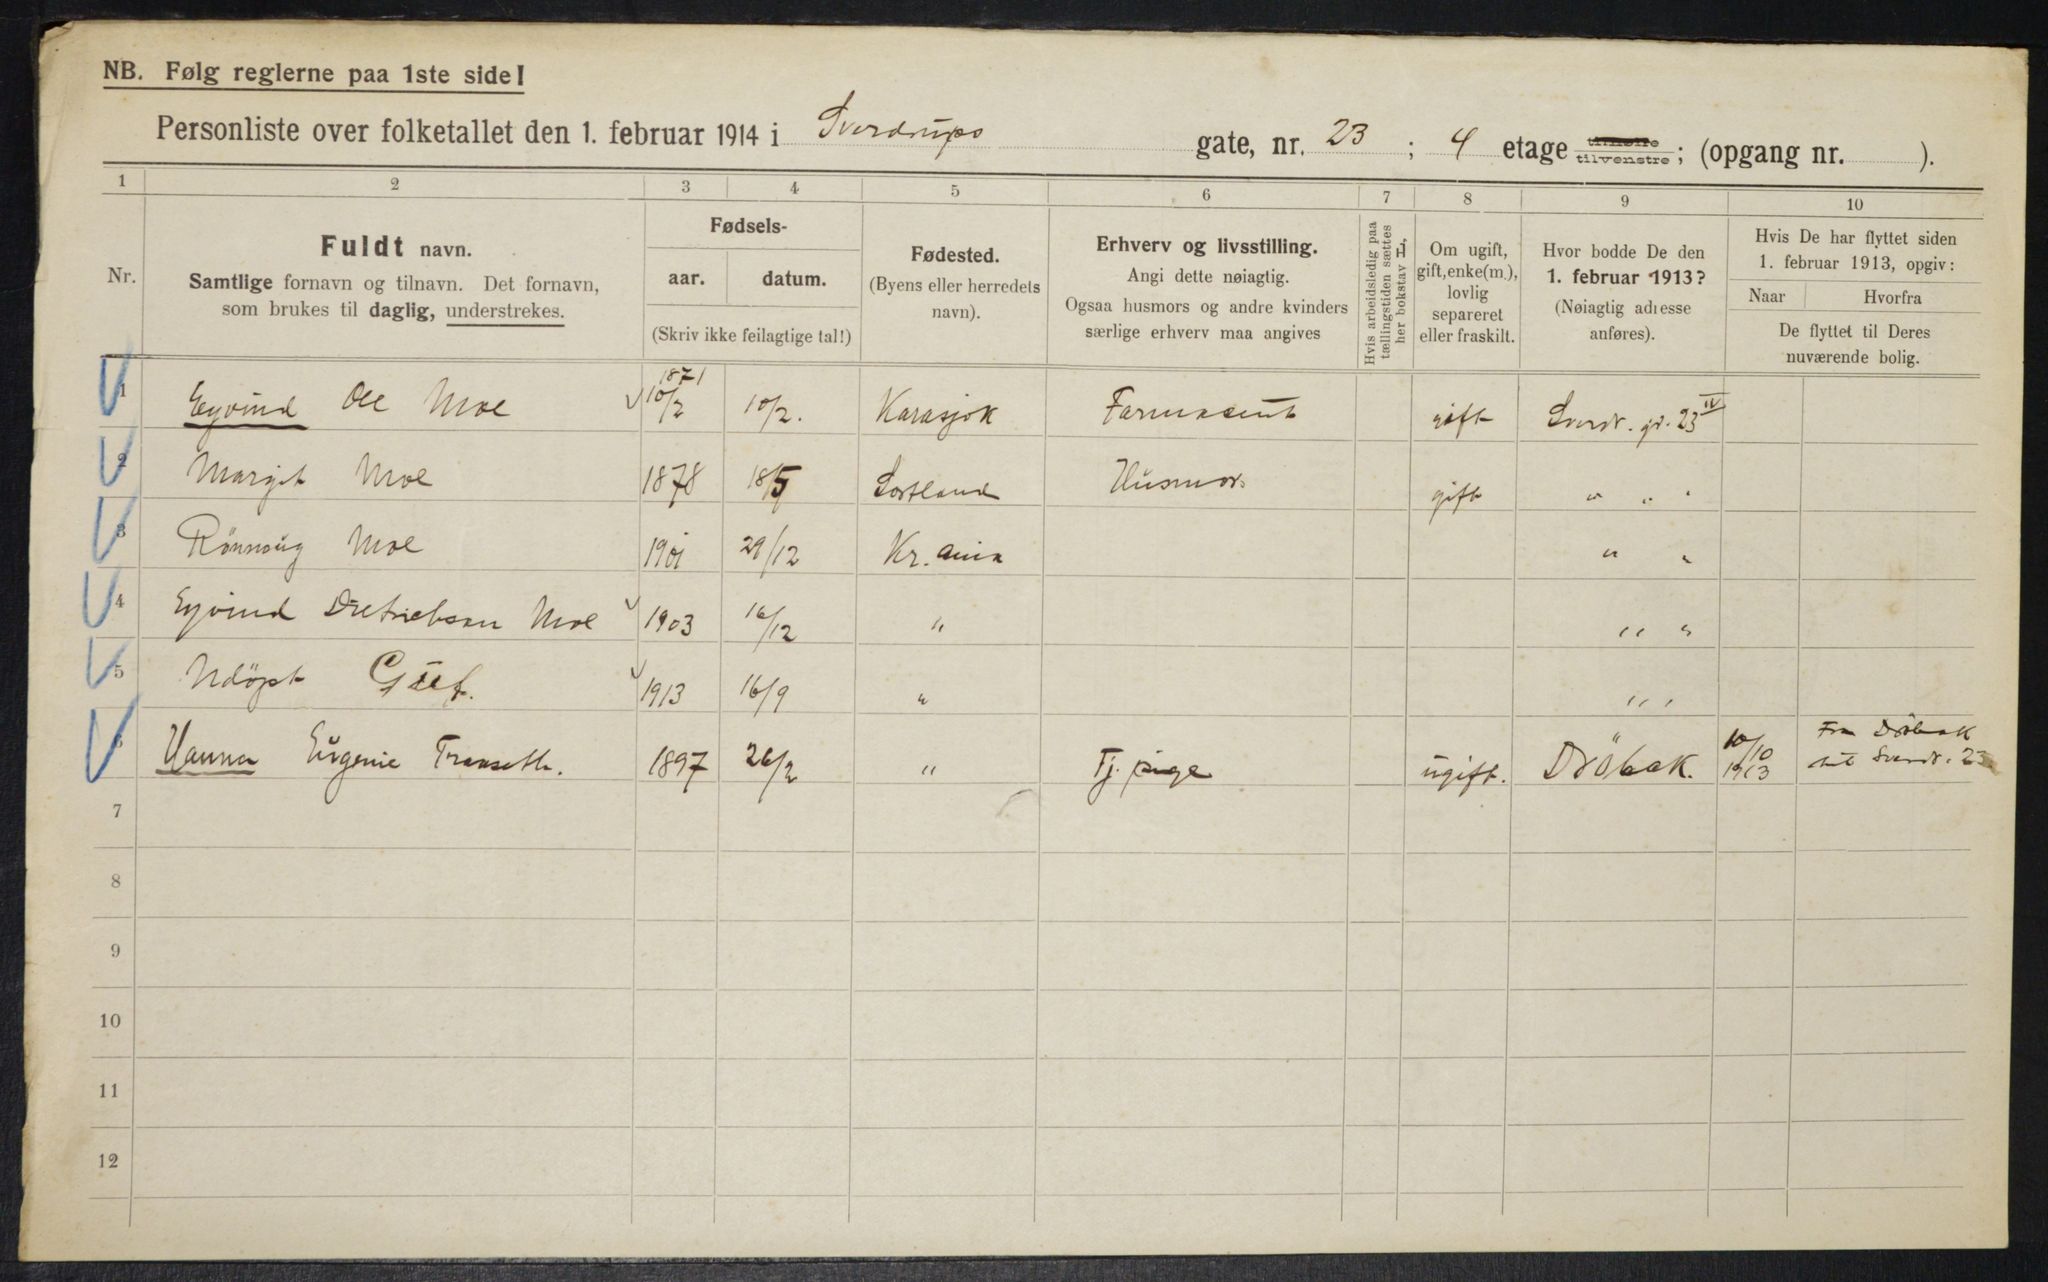 NB. Følg reglerne paa 1ste side!
Personliste over folketallet den 1. februar 1914 i Sverdrups gate, nr. 23 ; 4 etage tilhøire tilvenstre; (opgang nr. ).
1 2 3 4 5 6 7 8 9 10
Nr.
Fuldt navn.
Samtlige fornavn og tilnavn. Det fornavn,
som brukes til daglig, understrekes.
Fødsels-
aar. datum.
(Skriv ikke feilagtige tal!)
Fødested.
(Byens eller herredets
navn).
Erhverv og livsstilling.
Angi dette nøiagtig.
Ogsaa husmors og andre kvinders
særlige erhverv maa angives
Hvis arbeidsledig paa
tællingstiden sættes
her bokstav L.
Om ugift,
gift, enke(m.),
lovlig
separeret
eller fraskilt.
Hvor bodde De den
1. februar 1913?
(Nøiagtig adresse
anføres).
Hvis De har flyttet siden
1. februar 1913, opgiv:
Naar Hvorfra
De flyttet til Deres
nuværende bolig.
1 Eyvind Ole Moe 1871 10/2 10/2. Karasjok Farmaceut gift Sverdr. gt. 23 IV
2 Margit Moe 1878 18/5 Sortland Husmor gift " " "
3 Rönnaug Moe 1901 29/12 Kr.ania " "
4 Eyvind Dietrichson Moe 1903 16/12 " " "
5 Udöpt Gut. 1913 16/9 " " "
6 Hanna Eugenie Transeth. 1897 26/2 " Tj. pige ugift. Dröbak. 10/10 1913 Fra Dröbak til Sverdr. 23
7
8
9
10
11
12